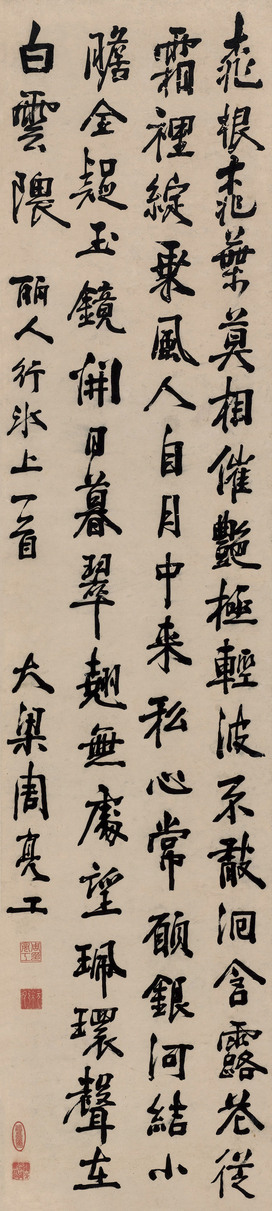 桃根桃葉莫相催艷極輕波不敢洄含露花從
霜裡綻乘風人自月中来私心常願銀河結小
膽全疑玉鏡開日暮翠翹無處望珮環聲在
白雲隈 丽人行冰上一首 大梁周亮工